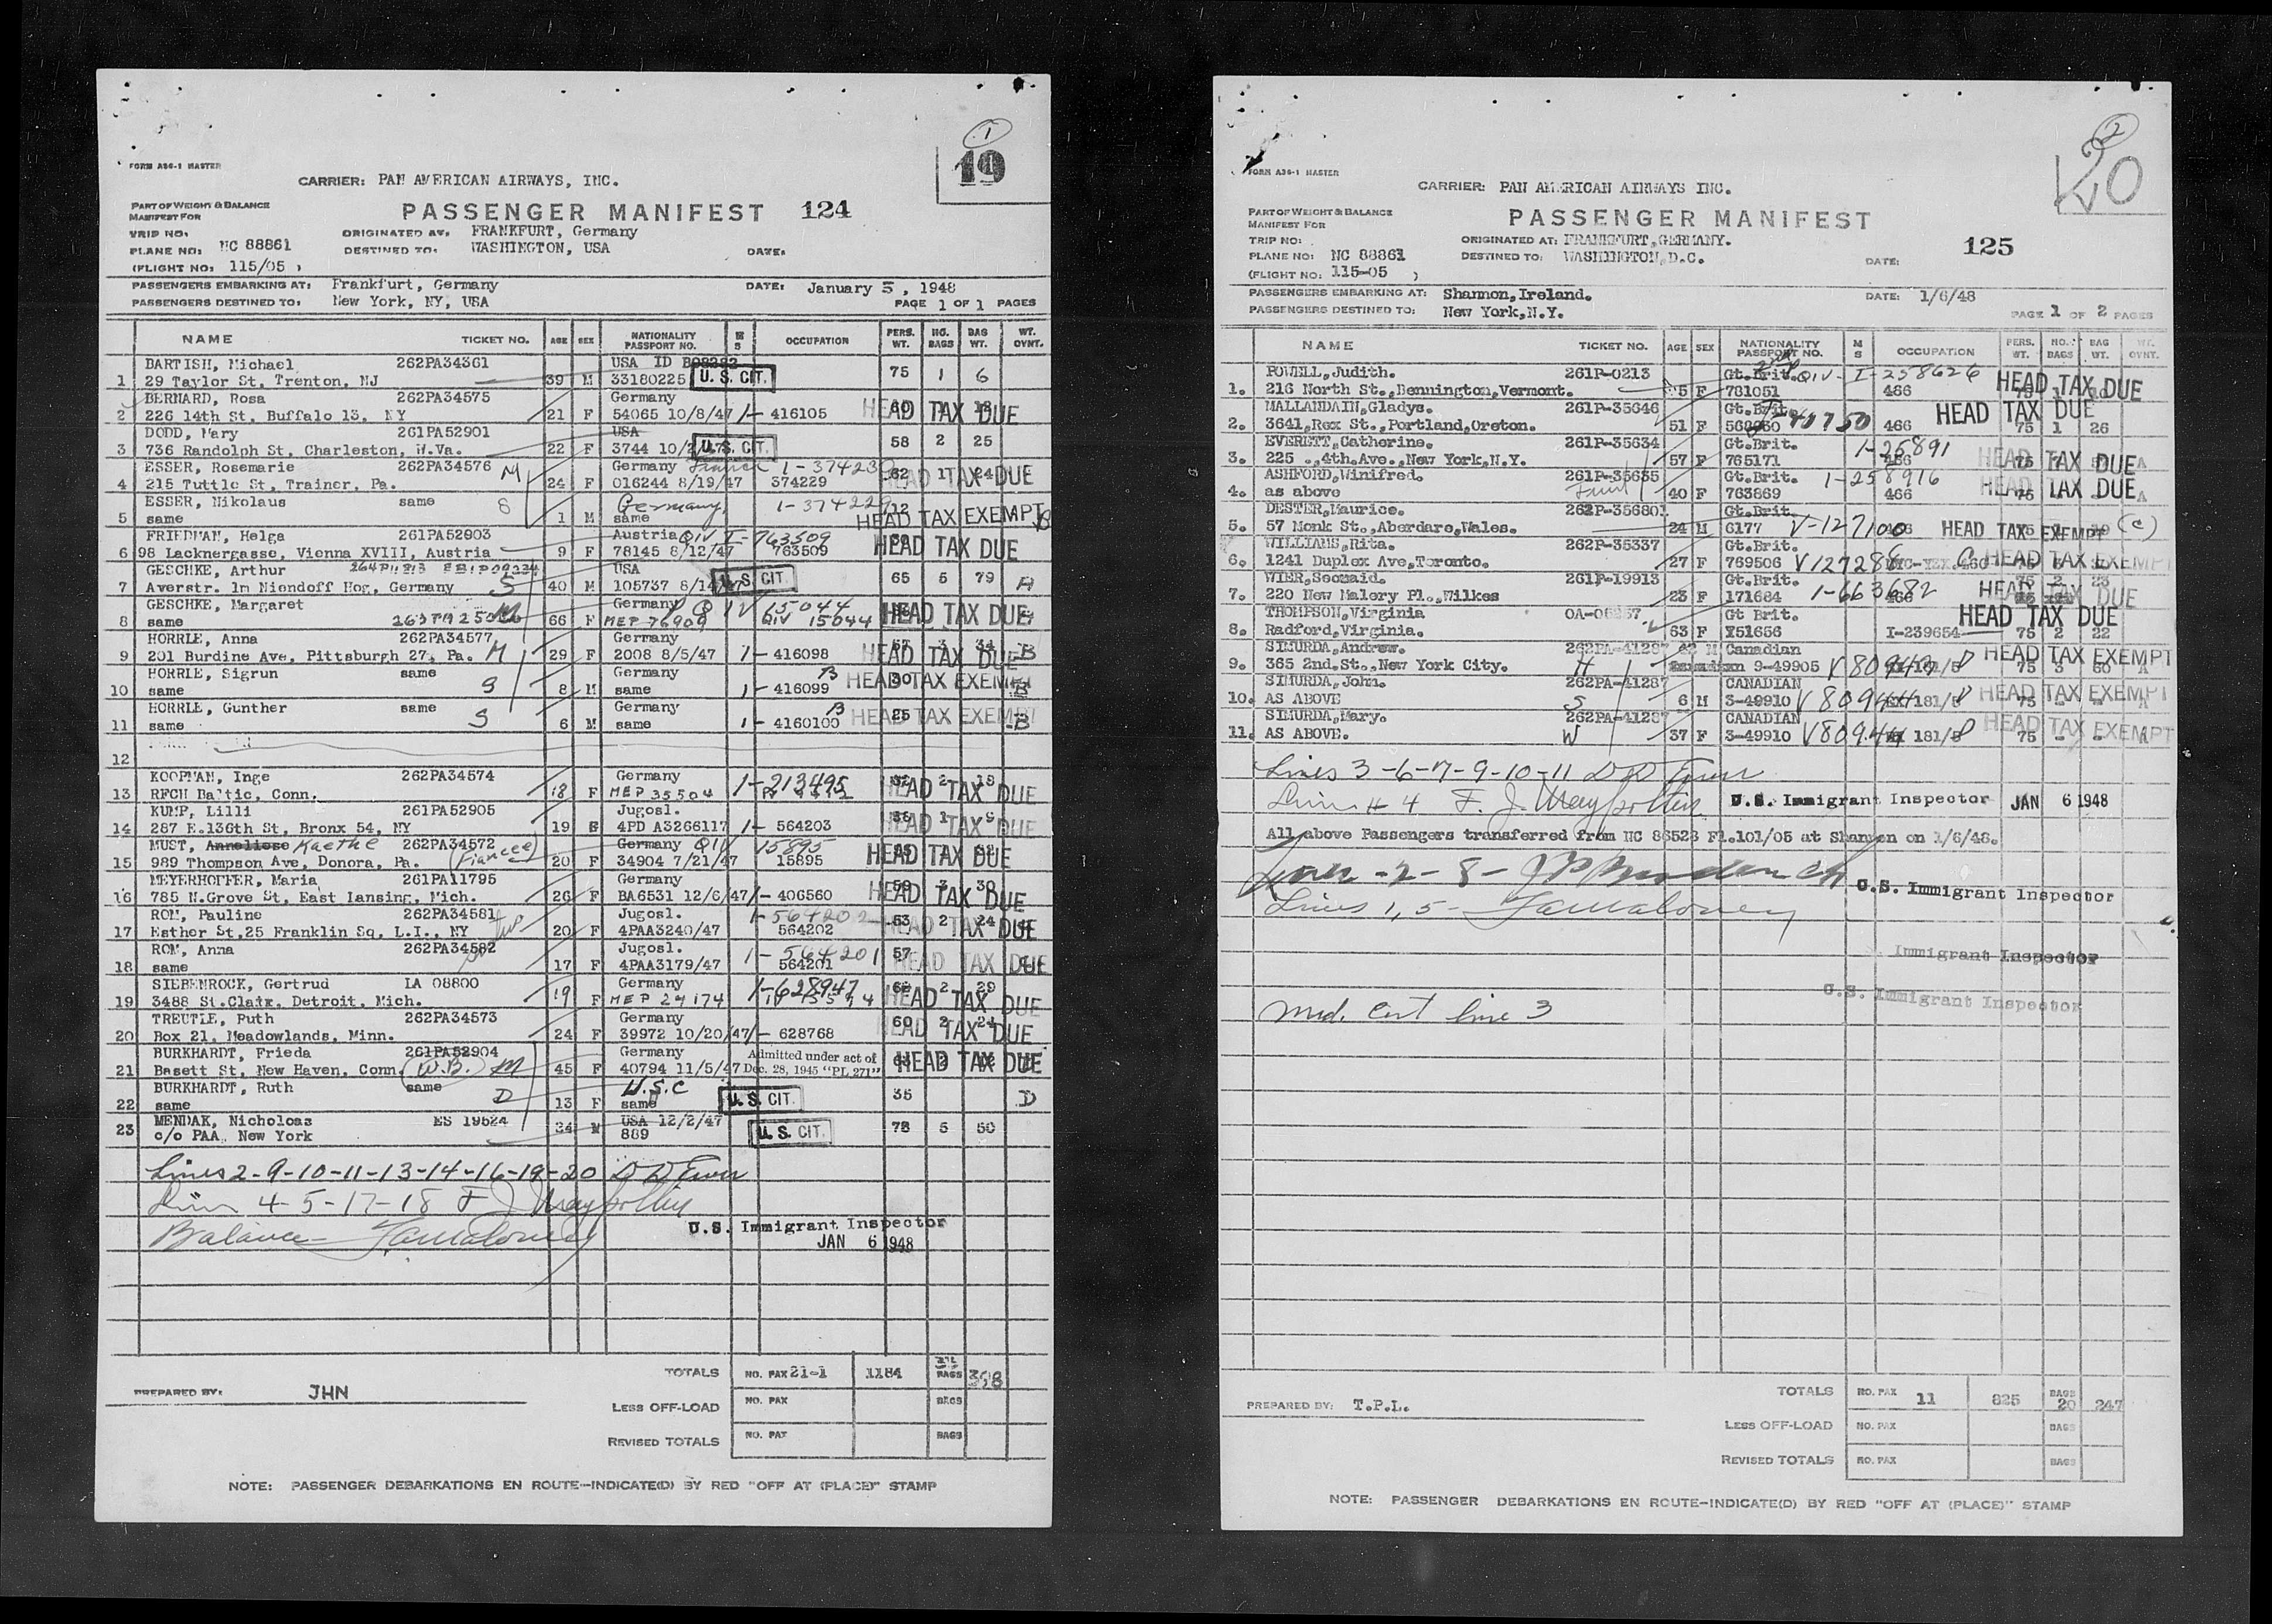 1
19
FORM A36-1 MASTER
CARRIER: PAN AMERICAN AIRWAYS, INC.
PART OF WEIGHT & BALANCE
MANIFEST FOR
PASSENGER MANIFEST 124
TRIP NO:
ORIGINATED AT: FRANKFURT, Germany
PLANE NO: NC 88861
DESTINED TO: WASHINGTON, USA
DATE:
(FLIGHT NO: 115/05 )
PASSENGERS EMBARKING AT: Frankfurt, Germany
DATE: January 5, 1948
PASSENGERS DESTINED TO: New York, NY, USA
PAGE 1 OF 1 PAGES
NAME TICKET NO. AGE SEX NATIONALITY PASSPORT NO. M S OCCUPATION PERS. WT. NO. BAGS BAG WT. WT. CVNT.
BARTISH, Michael 262PA34361 USA ID
1 29 Taylor St, Trenton, NJ 39 M 33180225 U. S. CIT. 75 1 6
BERNARD, Rosa 262PA34575 Germany
2 226 14th St, Buffalo 13, NY 21 F 54065 10/8/47 1- 416105 HEAD TAX DUE
DODD, Mary 261PA52901 USA
3 736 Randolph St, Charleston, W.Va. 22 F 3744 U. S. CIT. 58 2 25
ESSER, Rosemarie 262PA34576 M Germany
4 215 Tuttle St, Trainer, Pa. 24 F 016244 8/19/47 374229 62 1 24 HEAD TAX DUE
ESSER, Nikolaus same S Germany 1-374229
5 same 1 M same 12 HEAD TAX EXEMPT
FRIEDMAN, Helga 261PA52903 Austria QIV I-763509
6 98 Lacknergasse, Vienna XVIII, Austria 9 F 78145 8/12/47 763509 HEAD TAX DUE
GESCHKE, Arthur USA
7 Averstr. 1m Niendoff Hog, Germany S 40 M 105737 U. S. CIT. 65 5 79 A
GESCHKE, Margaret Germany QIV 15044
8 same M 66 F MEP 76909 QIV 15044 HEAD TAX DUE
HORRLE, Anna 262PA34577 Germany
9 201 Burdine Ave, Pittsburgh 27, Pa. M 29 F 2008 8/5/47 1- 416098 57 3 34 HEAD TAX DUE B
HORRLE, Sigrun same Germany B
10 same S 8 M same 1- 416099 30 HEAD TAX EXEMPT B
HORRLE, Gunther same Germany B
11 same S 6 M same 1- 4160100 25 HEAD TAX EXEMPT B
12
KOOPMAN, Inge 262PA34574 Germany 1-213495
13 RFCH Baltic, Conn. 18 F MEP 35504 HEAD TAX DUE
KUMP, Lilli 261PA52905 Jugosl.
14 287 E.136th St, Bronx 54, NY 19 F 4PD A3266117 1- 564203 HEAD TAX DUE
MUST, Anneliese Kaethe 262PA34572 Germany QIV 15895
15 989 Thompson Ave, Donora, Pa. (Fiancee) 20 F 34904 7/21/47 15895 HEAD TAX DUE
MEYERHOFFER, Maria 261PA11795 Germany
16 785 N.Grove St, East Lansing, Mich. 26 F BA6531 12/6/47 1- 406560 HEAD TAX DUE
ROM, Pauline 262PA34581 Jugosl. 1-564202
17 Esther St,25 Franklin Sq, L.I., NY 20 F 4PAA3240/47 564202 53 2 24 HEAD TAX DUE
ROM, Anna 262PA34582 Jugosl. 1-564201 57
18 same 17 F 4PAA3179/47 564201 HEAD TAX DUE
SIEBENROCK, Gertrud IA 08800 Germany 1-628947
19 3488 St.Clair, Detroit, Mich. 19 F MEP 29174 HEAD TAX DUE
TREUTLE, Ruth 262PA34573 Germany
20 Box 21, Meadowlands, Minn. 24 F 39972 10/20/47 1- 628768 60 2 24 HEAD TAX DUE
BURKHARDT, Frieda 261PA52904 Germany Admitted under act of
21 Basett St, New Haven, Conn. W.B. M 45 F 40794 11/5/47 Dec. 28, 1945 "PL 271" HEAD TAX DUE
BURKHARDT, Ruth same U.S.C
22 same D 13 F same U. S. CIT. 35 D
MENDAK, Nicholoas ES 19524 USA 12/2/47
23 c/o PAA, New York 34 M 889 U. S. CIT. 78 5 50
Lines 2-9-10-11-13-14-16-19-20
4-5-17-18
Balance
U.S. Immigrant Inspector
JAN 6 1948
TOTALS NO. PAX 21-1 1184 BAGS 398
PREPARED BY: JHN
LESS OFF-LOAD NO. PAX BAGS
REVISED TOTALS NO. PAX BAGS
NOTE: PASSENGER DEBARKATIONS EN ROUTE-INDICATE(D) BY RED "OFF AT (PLACE)" STAMP
2
20
FORM A36-1 MASTER
CARRIER: PAN AMERICAN AIRWAYS INC.
PART OF WEIGHT & BALANCE
MANIFEST FOR
PASSENGER MANIFEST
125
TRIP NO:
ORIGINATED AT: FRANKFURT, GERMANY.
PLANE NO: NC 88861
DESTINED TO: WASHINGTON, D.C.
DATE:
(FLIGHT NO: 115-05 )
PASSENGERS EMBARKING AT: Shannon, Ireland.
DATE: 1/6/48
PASSENGERS DESTINED TO: New York, N.Y.
PAGE 1 OF 2 PAGES
NAME TICKET NO. AGE SEX NATIONALITY PASSPORT NO. M S OCCUPATION PERS. WT. NO. BAGS BAG WT. WT. CVNT.
POWELL, Judith. 261P-0213 Gt.Brit. QIV-I-258626
1. 216 North St., Bennington, Vermont. F 781051 466 HEAD TAX DUE
MALLANDAIN, Gladys. 261P-35646 Gt.Brit.
2. 3641, Rex St., Portland, Oreton. 51 F 466 75 1 26 HEAD TAX DUE
EVERETT, Catherine. 261P-35634 Gt.Brit. 1-25891
3. 225 ., 4th.Ave., New York, N.Y. 57 F 765171 466 HEAD TAX DUE A
ASHFORD, Winifred. 261P-35635 Gt.Brit. 1-258916
4. as above 40 F 763869 466 75 HEAD TAX DUE A
DESTER, Maurice. 262P-356801 Gt.Brit.
5. 57 Monk St., Aberdare, Wales. 24 M 6177 V-127100 HEAD TAX EXEMPT (C)
WILLIAMS, Rita. 262P-35337 Gt.Brit.
6. 1241 Duplex Ave, Toronto. 27 F 769506 V127286 HEAD TAX EXEMPT
WIER, Seonaid. 261P-19913 Gt.Brit.
7. 220 New Malery Pl., Wilkes 23 F 171684 1-663682 466 HEAD TAX DUE
THOMPSON, Virginia Gt Brit. HEAD TAX DUE
8. Radford, Virginia. 63 F Y51656 I-239654 75 2 22
SIMURDA, Andrew. 262PA-41287 M Canadian
9. 365 2nd. St., New York City. H Canadian 9-49905 V 80943 HEAD TAX EXEMPT
SIMURDA, John. 262PA-41287 CANADIAN
10. AS ABOVE S 6 M 3-49910 V 80944 181/8 75 HEAD TAX EXEMPT
SIMURDA, Mary. 262PA-41287 CANADIAN
11. AS ABOVE. W 37 F 3-49910 V80944 181/8 75 HEAD TAX EXEMPT
Lines 3-6-7-9-10-11
4
U.S. Immigrant Inspector JAN 6 1948
All above Passengers transferred from NC 86528 Fl.101/05 at Shannon on 1/6/48.
2-8-
U.S. Immigrant Inspector
Lines 1, 5-
Immigrant Inspector
U.S. Immigrant Inspector
Med. Cert line 3
TOTALS NO. PAX 11 825 BAGS 20 247
PREPARED BY: T.P.L.
LESS OFF-LOAD NO. PAX BAGS
REVISED TOTALS NO. PAX BAGS
NOTE: PASSENGER DEBARKATIONS EN ROUTE-INDICATE(D) BY RED "OFF AT (PLACE)" STAMP